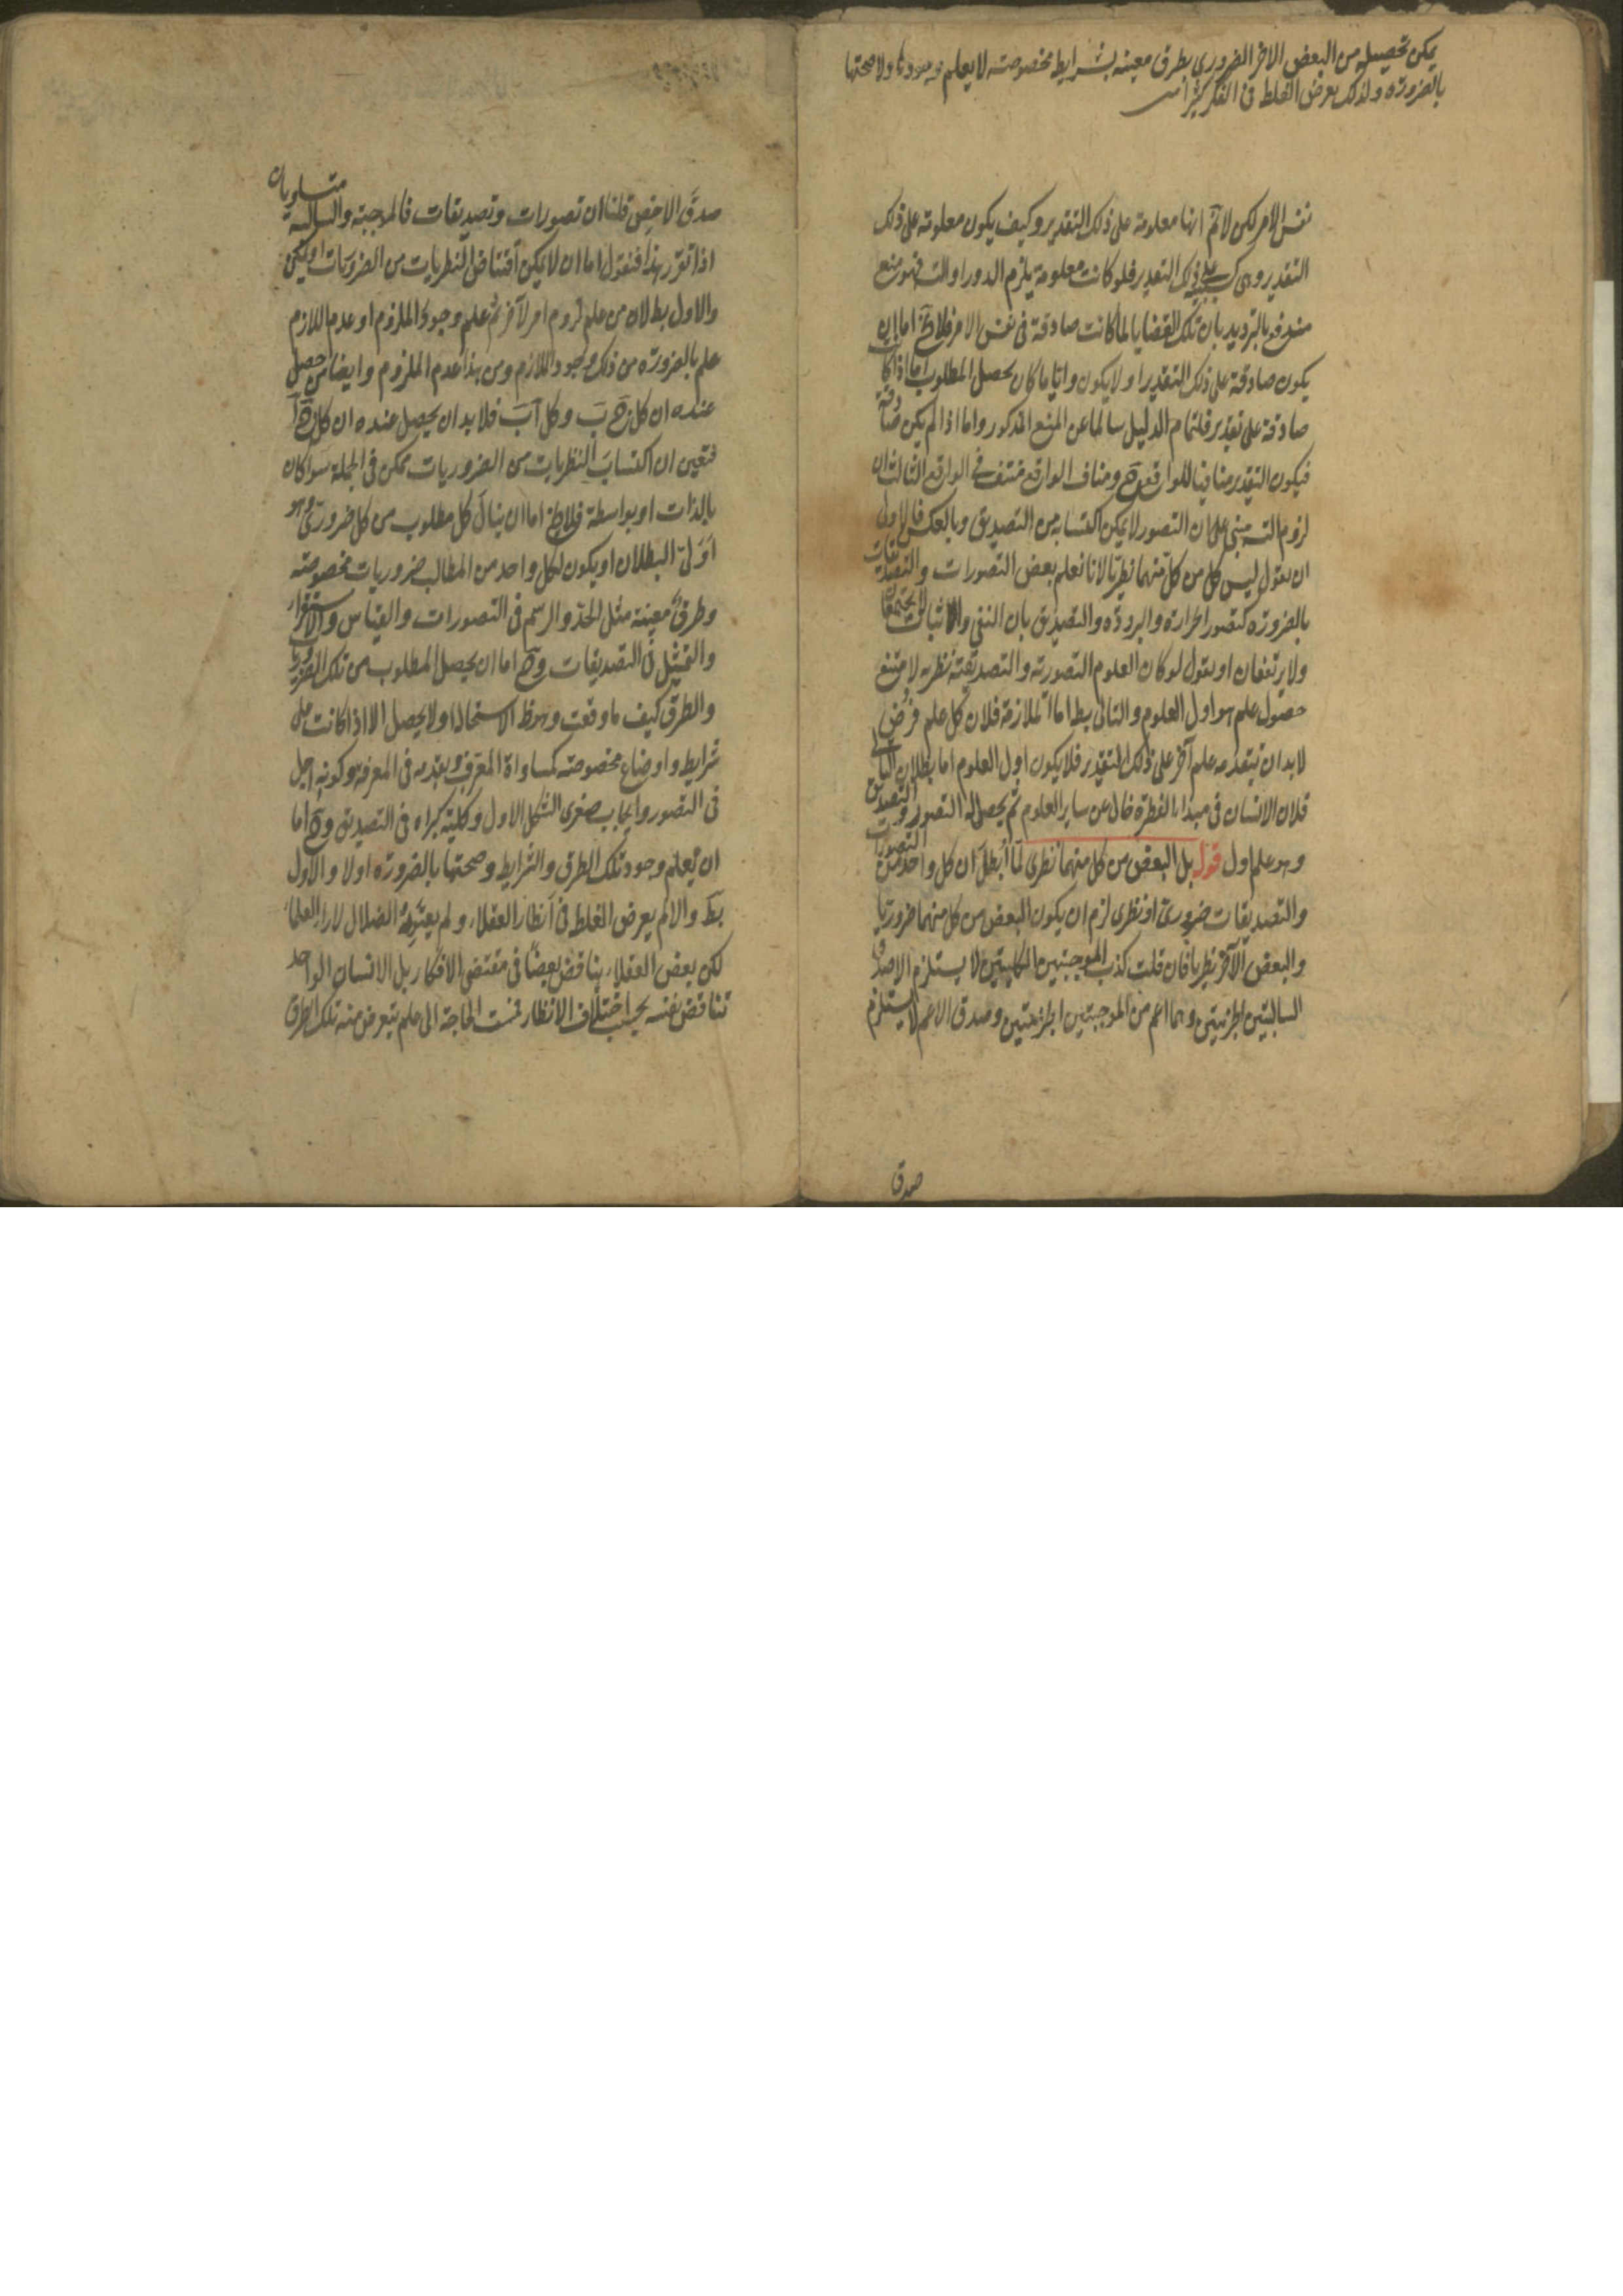 يمكن تحصيله من البعض الاخر الضروري بطرق معينه بشرايط مخصوصة لا يعلم وجودها ولا صحتها
بالضرورة ولذلك يعرض الغلط فى الفكر
نفس الامر لكن لانم انها معلومة على ذلك التقدير وكيف يكون معلومة على ذلك
التقدير وهى كسبية على ذلك التقدير فلو كانت معلومة يلزم الدور او التس فهو منع
مندفع بالترديد بان تلك القضايا لما كانت صادقة فى نفس الامر فلا يخ اما ان
يكون صادقة على ذلك التقدير او لا يكون واياما كان يحصل المطلوب اما اذا كانت
صادقة على تقدير فلتمام الدليل سالما عن المنع المذكور واما اذا لم يكن صادقة
فيكون التقدير منافيا للواقع ومناف الواقع منتف فى الواقع الثالث ان
لزوم التس مبنى على ان التصور لا يمكن اكتسابه من التصديق وبالعكس فالاولى
ان يقول ليس كل من كل منهما نظريا لانا نعلم بعض التصورات والتصديقات
بالضرورة كتصور الحرارة والبرودة والتصديق بان النفى والاثبات لا يجتمعان
ولا يرتفعان او يقول لو كان العلوم التصورية والتصديقية نظرية لامتنع
حصول علم هو اول العلوم والتالى بط اما الملازمة فلان كل علم فرض
لابد ان يتقدمه علم آخر على ذلك التقدير فلا يكون اول العلوم اما بطلان التالى
فلان الانسان فى مبداء الفطرة خال عن ساير العلوم ثم يحصل له التصور والتصديق
وهو علم اول قوله بل البعض من كل منهما نظرى لما ابطل ان كل واحد من التصورات
والتصديقات ضرورى او نظرى لزم ان يكون البعض من كل منهما ضروريا
والبعض الآخر نظريا فان قلت كذب الموجبتين الكليتين لا يستلزم الا صدق
السالبتين الجزئيتين وهما اعم من الموجبتين الجزئيتين وصدق الاعم لا يستلزم
صدق
صدق الاخص قلنا ان تصورات وتصديقات فالموجبة والسالبة متساويان
اذا تقرر هذا فنقول اما ان لا يمكن اقتناص النظريات من الضروريات او يمكن
والاول بط لان من علم لزوم امر لآخر ثم علم وجود الملزوم او عدم اللازم
علم بالضرورة من ذلك وجود اللازم ومن هذا عدم الملزوم وايضا من حصل
عنده ان كل ج ب وكل ب ا فلابد ان يحصل عنده ان كل ج ا
فتعين ان اكتساب النظريات من الضروريات ممكن فى الجملة سواء كان
بالذات او بواسطة فلا يخ اما ان ينال كل مطلوب من كل ضرورى وهو
اولى البطلان او يكون لكل واحد من المطالب ضروريات مخصوصة
وطرق معينة مثل الحد والرسم فى التصورات والقياس والاستقراء
والتمثيل فى التصديقات وح اما ان يحصل المطلوب من تلك الضروريات
والطرق كيف ما وقعت وهو ظ الاستحالة او لا يحصل الا اذا كانت على
شرايط واوضاع مخصوصة كمساواة المعرف وتقدمه فى المعرفة وكونه اجلى
فى التصور وايجاب صغرى الشكل الاول وكلية كبراه فى التصديق وح اما
ان يعلم وجود تلك الطرق والشرايط وصحتها بالضرورة اولا والاول
بط والا لم يعرض الغلط فى انظار العقلاء ولم يعتور الضلال لاراء العلماء
لكن بعض العقلاء يناقض بعضا فى مقتضى الافكار بل الانسان الواحد
تناقض نفسه بحسب اختلاف الانظار فمست الحاجة الى علم يتعرف منه تلك الطرق